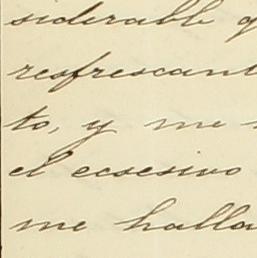 siderable q
resfrescant
to, y me
el ecsesivo
me halla